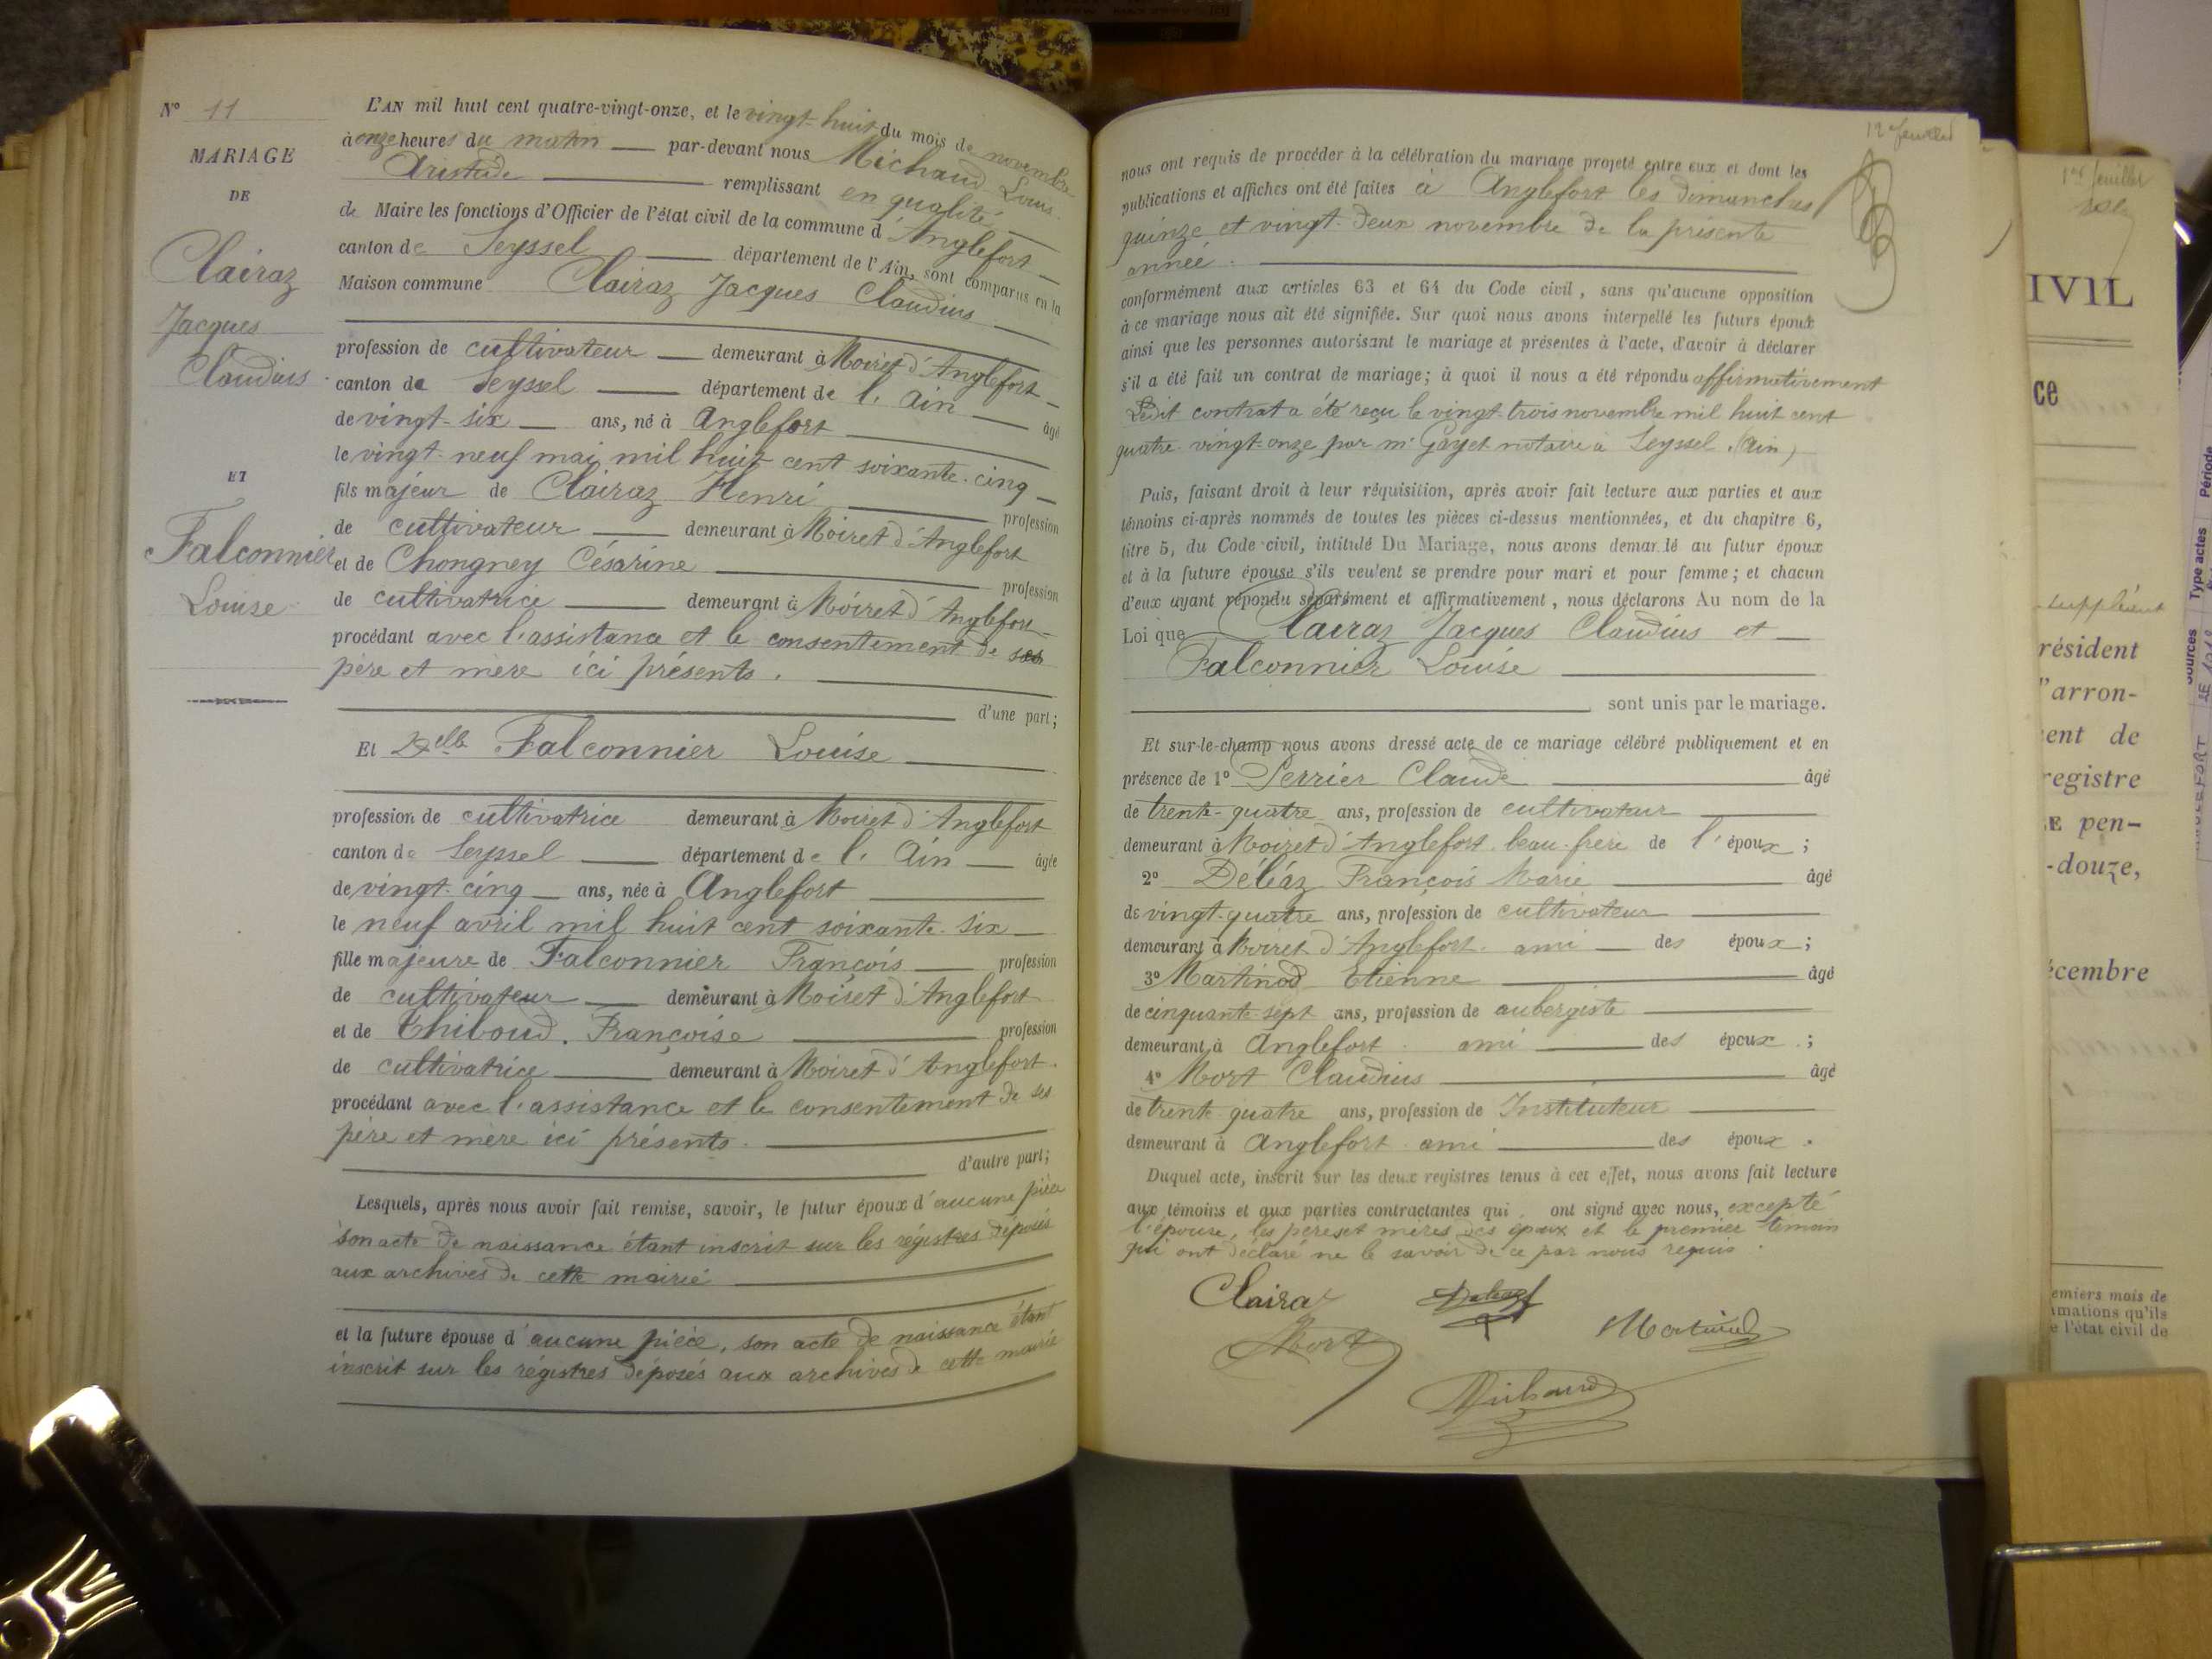 Nº 11
MARIAGE
DE
Clairaz
Jacques
Claudius
ET
Falconnier
Louise
L'AN mil huit cent quatre-vingt-onze, et le vingt-huit du mois de novembre
à onze heures du matin par-devant nous Michaud Louis
Aristide remplissant en qualité
de Maire les fonctions d'Officier de l'état civil de la commune d'Anglefort
canton de Seyssel département de l'Ain, sont comparus en la
Maison commune Clairaz Jacques Claudius
profession de cultivateur demeurant à Moiret d'Anglefort
canton de Seyssel département de l'Ain âgé
de vingt-six ans, né à Anglefort
le vingt-neuf mai mil huit cent soixante-cinq
fils majeur de Clairaz Henri profession
de cultivateur demeurant à Moiret d'Anglefort
et de Chongney Césarine profession
de cultivatrice demeurant à Moiret d'Anglefort
procédant avec l'assistance et le consentement de ses
père et mère ici présents.
d'une part;
Et Delle Falconnier Louise
profession de cultivatrice demeurant à Moiret d'Anglefort
canton de Seyssel département de l'Ain âgée
de vingt-cinq ans, née à Anglefort
le neuf avril mil huit cent soixante-six
fille majeure de Falconnier François profession
de cultivateur demeurant à Moiret d'Anglefort
et de Thiboud Françoise profession
de cultivatrice demeurant à Moiret d'Anglefort.
procédant avec l'assistance et le consentement de ses
père et mère ici présents.
d'autre part;
Lesquels, après nous avoir fait remise, savoir, le futur époux d'aucune pièce
son acte de naissance étant inscrit sur les régistres déposés
aux archives de cette mairie
et la future épouse d'aucune pièce, son acte de naissance étant
inscrit sur les régistres déposés aux archives de cette mairie
12e feuillet
nous ont requis de procéder à la célébration du mariage projeté entre eux et dont les
publications et affiches ont été faites à Anglefort les dimanches
quinze et vingt-deux novembre de la présente
année.
conformément aux articles 63 et 64 du Code civil, sans qu'aucune opposition
à ce mariage nous ait été signifiée. Sur quoi nous avons interpellé les futurs époux
ainsi que les personnes autorisant le mariage et présentes à l'acte, d'avoir à déclarer
s'il a été fait un contrat de mariage; à quoi il nous a été répondu affirmativement
Ledit contrat a été reçu le vingt-trois novembre mil huit cent
quatre-vingt-onze par Me Gayet notaire à Seyssel (Ain)
Puis, faisant droit à leur réquisition, après avoir fait lecture aux parties et aux
témoins ci-après nommés de toutes les pièces ci-dessus mentionnées, et du chapitre 6,
titre 5, du Code civil, intitulé Du Mariage, nous avons demandé au futur époux
et à la future épouse s'ils veulent se prendre pour mari et pour femme; et chacun
d'eux ayant répondu séparément et affirmativement, nous déclarons Au nom de la
Loi que Clairaz Jacques Claudius et
Falconnier Louise
sont unis par le mariage.
Et sur-le-champ nous avons dressé acte de ce mariage célébré publiquement et en
présence de 1º Perrier Claude âgé
de trente-quatre ans, profession de cultivateur
demeurant à Moiret d'Anglefort beau-frère de l'époux;
2º Déléaz François Marie âgé
de vingt-quatre ans, profession de cultivateur
demeurant à Moiret d'Anglefort. ami des époux;
3º Martinod Etienne âgé
de cinquante-sept ans, profession de aubergiste
demeurant à Anglefort. ami des époux;
4º Mort Claudius âgé
de trente-quatre ans, profession de Instituteur
demeurant à Anglefort ami des époux.
Duquel acte, inscrit sur les deux registres tenus à cet effet, nous avons fait lecture
aux témoins et aux parties contractantes qui ont signé avec nous, excepté
l'épouse, les pères et mères des époux et le premier témoin
qui ont déclaré ne le savoir de ce par nous requis.
Clairaz Deleaz Martinod
Mort
Michaud
1er feuillet
IVIL
ce
suppléant
résident
'arron-
ent de
registre
E pen-
-douze,
écembre
emiers mois de
amations qu'ils
e l'état civil de
Période
Type actes
Sources